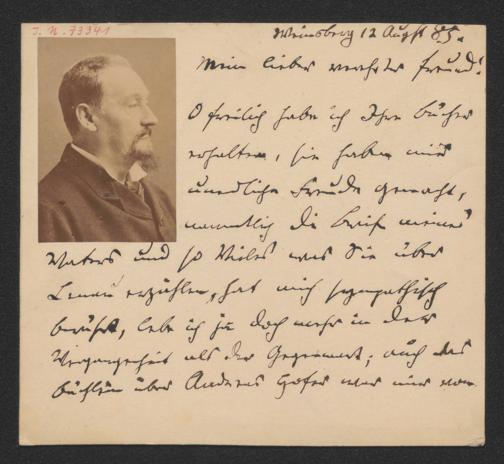 J. N. 73941
Weinsberg 12 Augst 85.
Mein lieber verehrter Freund!
O freilich habe ich Ihre Bücher
erhalten, sie haben mir
unendliche Freude gemacht,
namentlich die Briefe meines
Vaters und so Vieles was Sie über
Lenau erzählen, hat mich sympathisch
berührt, lebe ich ja doch mehr in der
Vergangenheit als der Gegenwart; auch das
Büchlein über Andreas Hofer war mir von